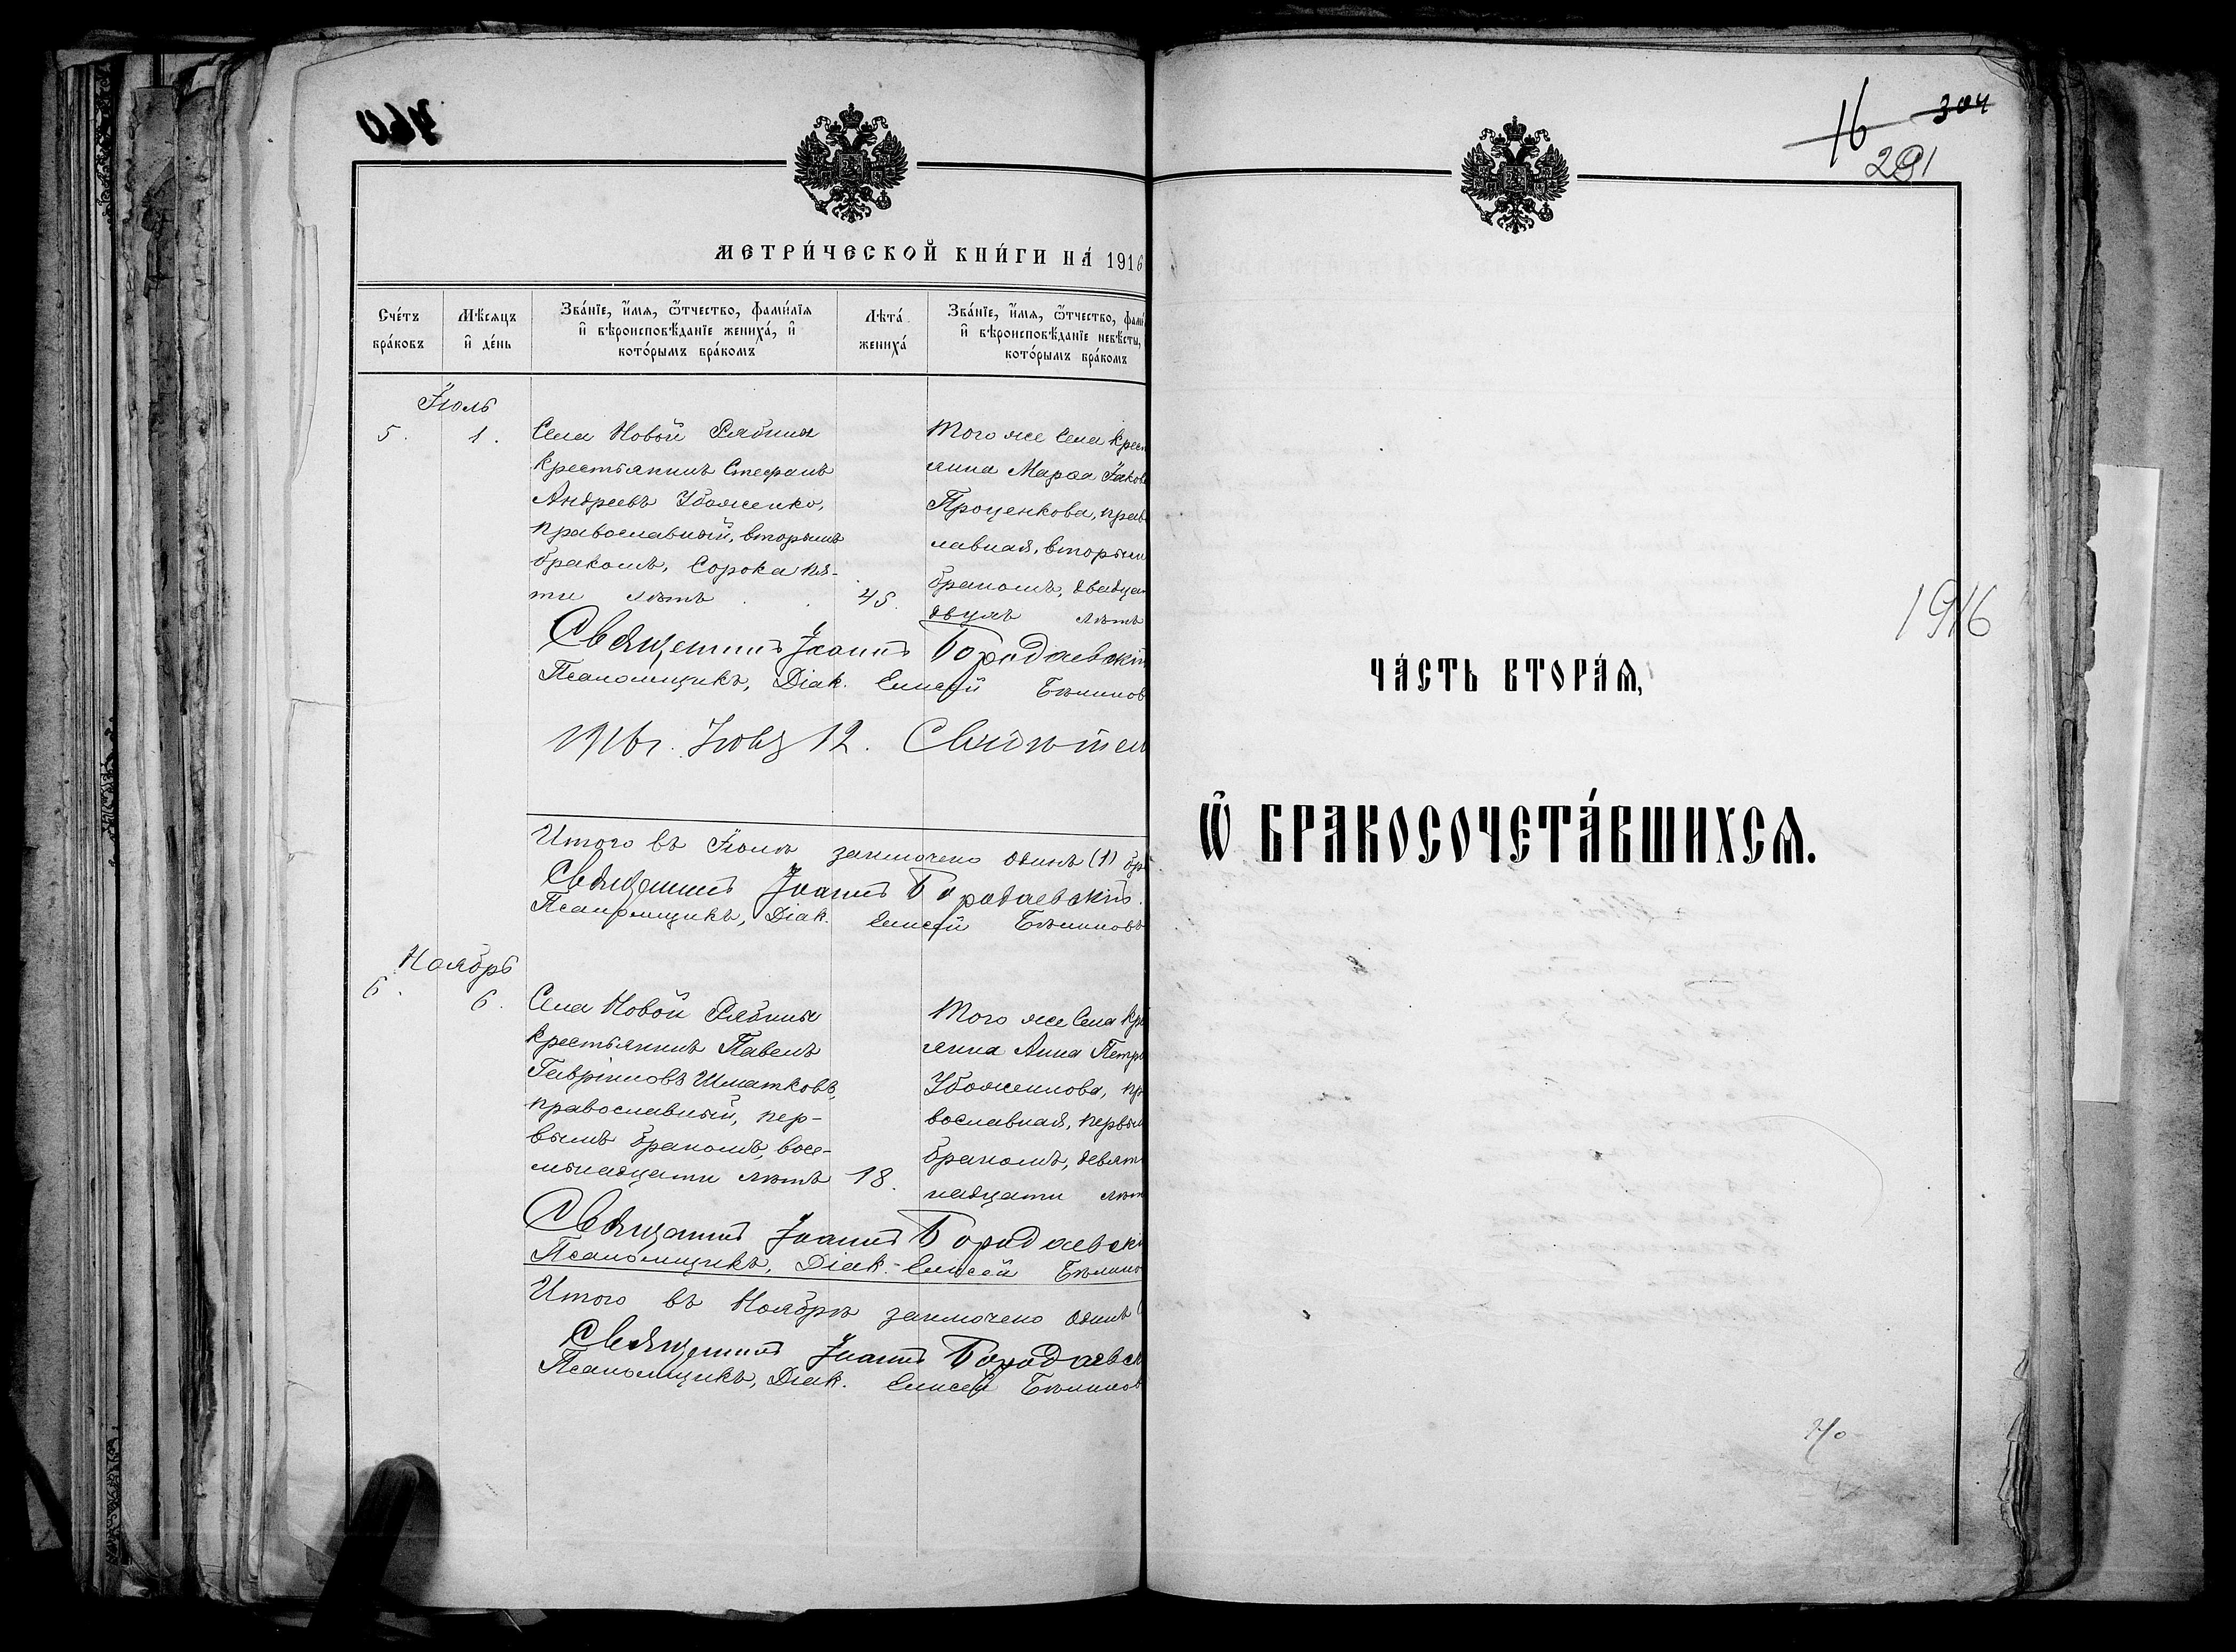 16 304
291
МЕТРИ́ЧЕСКОЙ КНИ́ГИ НА́ 1916
Сче́тъ бра́ковъ
Мѣ́сяцъ и҆ де́нь
Зва́нїе, и҆́мѧ, ѻ҆́тчество, фами́лїѧ и҆ вѣроисповѣ́данїе жениха́, и҆ кото́рымъ бра́комъ
Лѣта́ жениха́
Зва́нїе, и҆́мѧ, ѻ҆́тчество, фами и҆ вѣроисповѣ́данїе невѣ́сты, кото́рымъ бра́комъ
Іюль
5. 1.
Села Новой Рябины
крестьянинъ Стефанъ
Андреевъ Убоженко,
православный, вторымъ
бракомъ, сорока пя-
ти лѣтъ 45.
Того же села крест
янна Марѳа Іаковл
Проценкова, прав
лавная, вторым
бракомъ, двадца
двухъ лѣтъ
Священникъ Іоаннъ Бородаевскій
Псаломщикъ, Діак. Елисей Бѣликов
1916 г. Іюля 12. Свидѣтел
Итого въ Іюлѣ заключено одинъ (1) бр
Священникъ Іоаннъ Бородаевскій.
Псаломщикъ, Діак. Елисей Бѣликовъ
Ноябрь
6. 6.
Села Новой Рябины
крестьянинъ Павелъ
Гавріиловъ Шматковъ,
православный, пер-
вымъ бракомъ, восе-
мьнадцати лѣтъ 18.
Того же села кре
янна Анна Петро
Убоженкова, пра
вославная, первым
бракомъ, девят
надцати лѣт
Священникъ Іоаннъ Бородаевскі
Псаломщикъ, Діак. Елисей Бѣлико
Итого въ Ноябрѣ заключено одинъ (
Священникъ Іоаннъ Бородаевск
Псаломщикъ, Діак. Елисей Бѣликов
1916
ЧА́СТЬ ВТОРА́Ѧ,
Ѽ БРАКОСОЧЕТА́ВШИХСѦ.